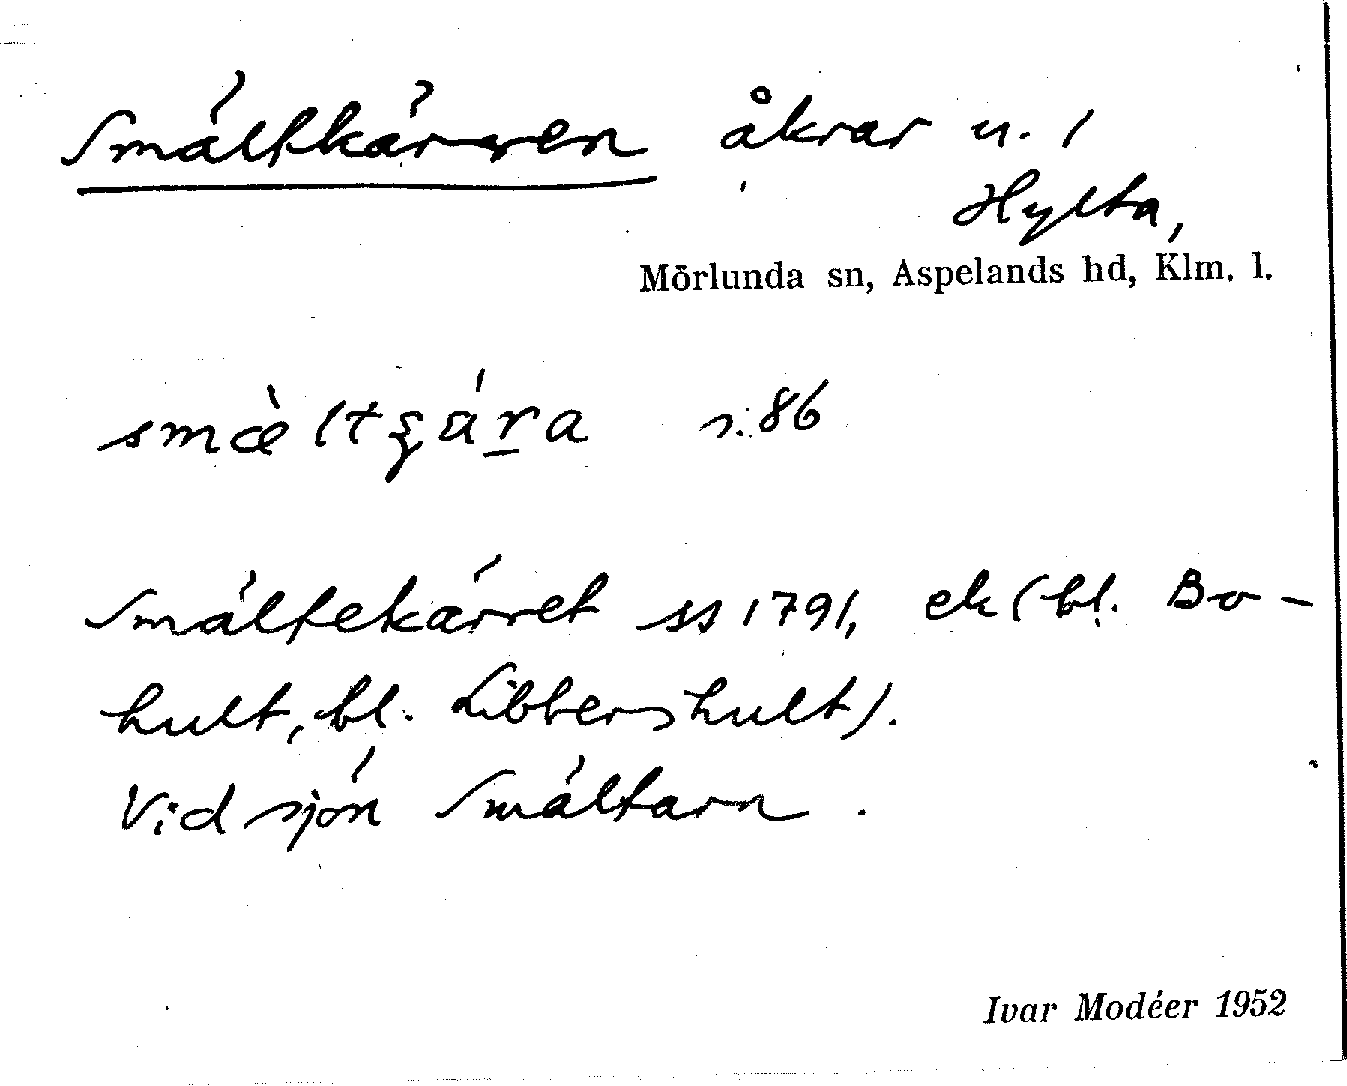 Smältkärren åkrar u. 1
Hylta,
Mörlunda sn, Aspelands hd, Klm. l.
s:86
Smältekärret ss 1791, ek (bl. Bo-
hult, bl. Libbershult).
Vid sjön Smältarn.
Ivar Modéer 1952